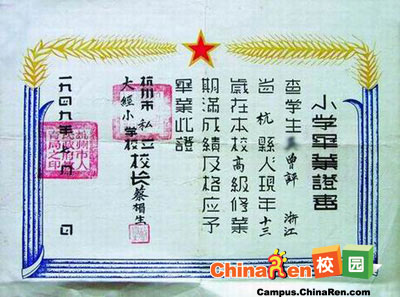 小学畢業證書
查学生 曾評 浙江
省 杭縣人現年十三
歲在本校高級修業
期滿成績及格应予
畢業此證
杭州市私立
大經小学校
校长 蔡相生
一九四九年 月 日
ChinaRen 校园
Campus.ChinaRen.com